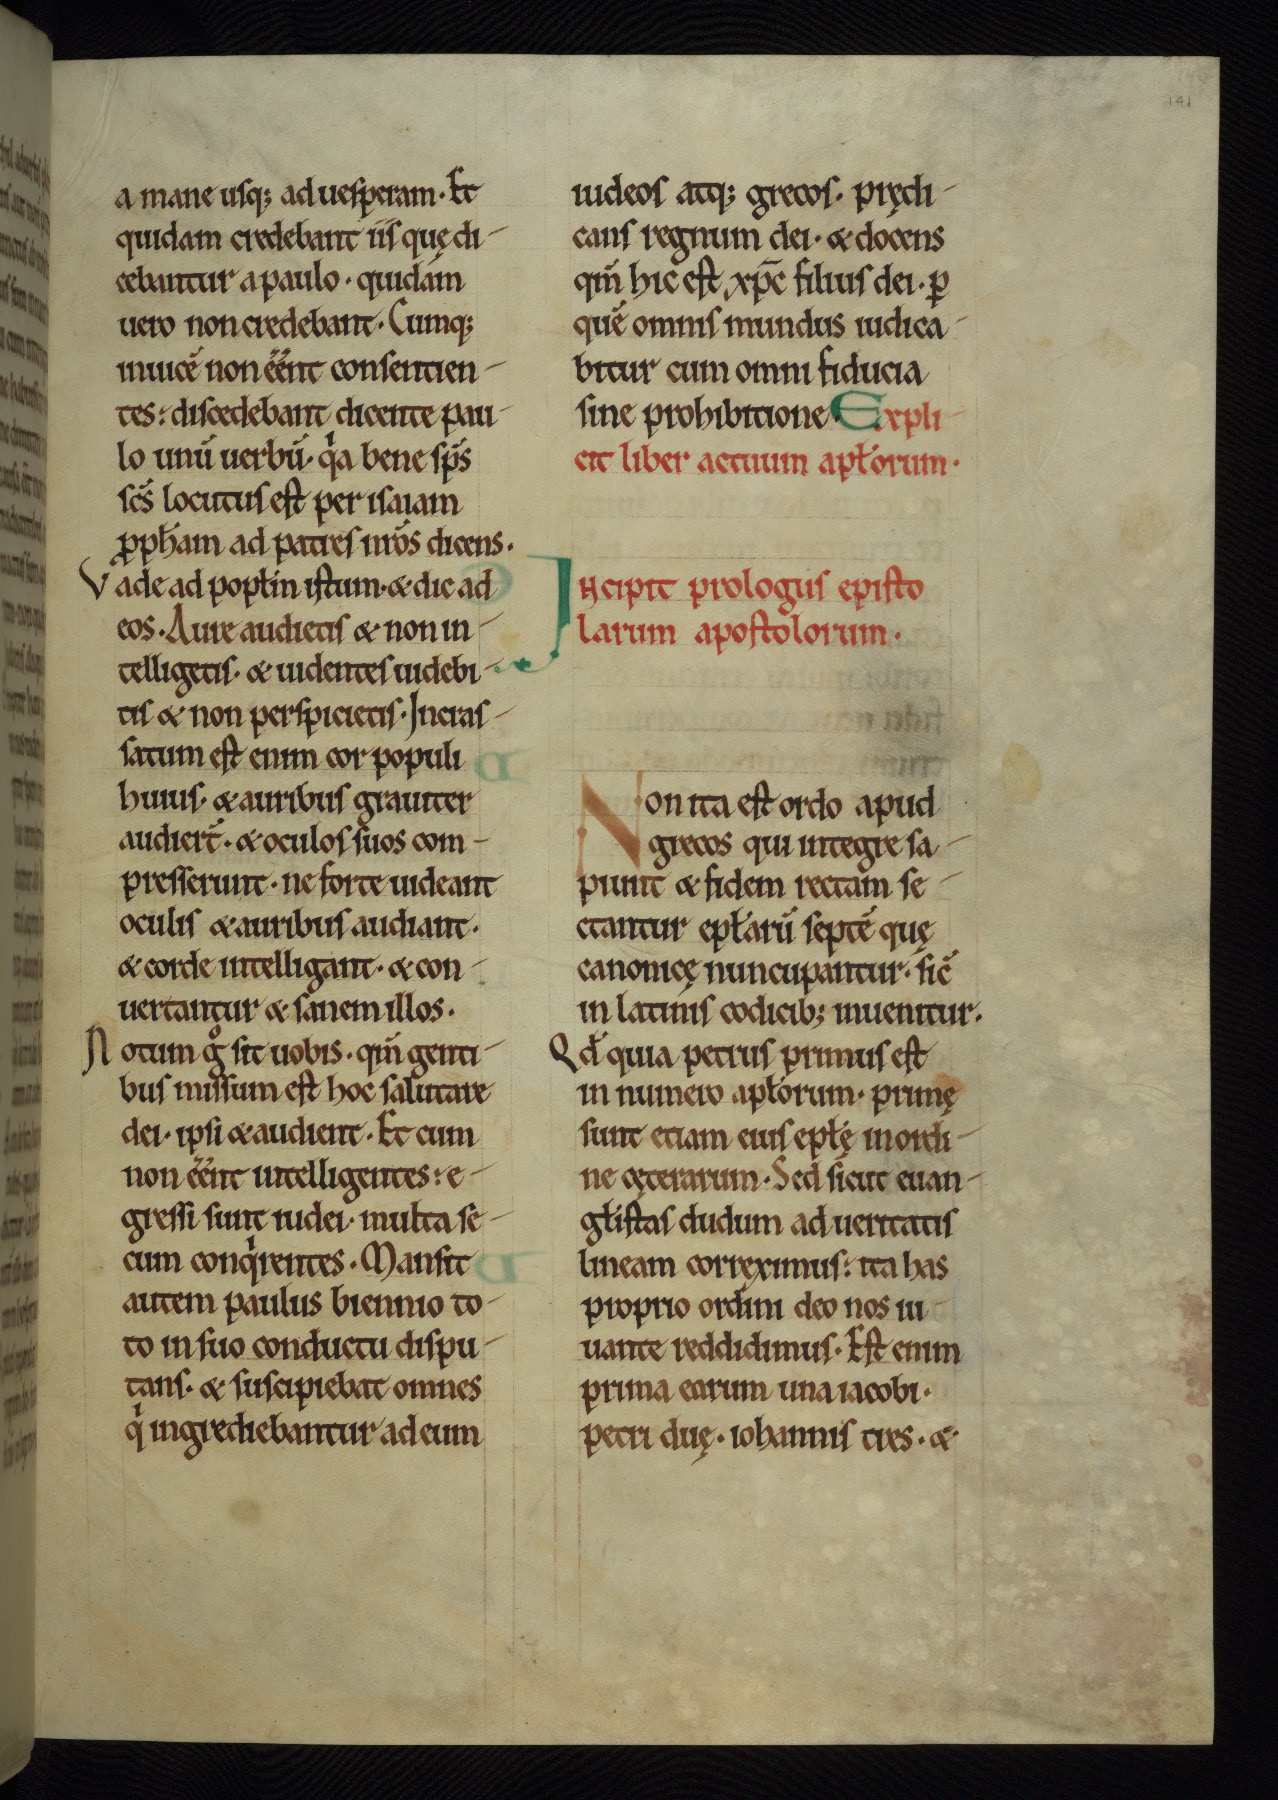 141
a mane usq; ad uesperam. Et
quidam credebant iis quę di-
cebantur a paulo. quidam
uero non credebant. Cumq;
inuicē non eēnt consentien-
tes: discedebant dicente pau-
lo unū uerbū. qa bene sps̄
scs̄ locutus est per isaiam
ꝓph̄am ad patres nr̄os dicens.
Vade ad popl̄m istum. & dic ad
eos. Aure audietis & non in-
telligetis. & uidentes uidebi-
tis & non perspicietis. Incras-
satum est enim cor populi
huius. & auribus grauiter
audier̄t. & oculos suos com-
presserunt. ne forte uideant
oculis & auribus audiant.
& corde intelligant. & con-
uertantur & sanem illos.
Notum gͦ sit uobis. qm̄ genti-
bus missum est hoc salutare
dei. ipsi & audient. Et cum
non eēnt intelligentes: e-
gressi sunt iudei. multa se-
cum conqͥrentes. Mansit
autem paulus biennio to-
to in suo conductu dispu-
tans. & suscipiebat omnes
qͥ ingrediebantur ad eum
iudeos atq; grecos. prędi-
cans regnum dei. & docens
qm̄ hic est xp̄c filius dei. ꝑ
quē omnis mundus iudica-
bitur cum omni fiducia
sine prohibitione Expli-
cit liber actuum apl̄orum.
Incipit prologus episto
larum apostolorum.
Non ita est ordo apud
grecos qui integre sa-
piunt & fidem rectam se-
ctantur epl̄arū septē quę
canonicę nuncupantur. sic̄
in latinis codicib; inuenitur.
Qd̄ quia petrus primus est
in numero apl̄orum. primę
sunt etiam eius epl̄ę in ordi-
ne cęterarum. Sed sicut euan-
gl̄istas dudum ad ueritatis
lineam correximus: ita has
proprio ordini deo nos iu-
uante reddidimus. Est enim
prima earum una iacobi.
petri duę. iohannis tres. &